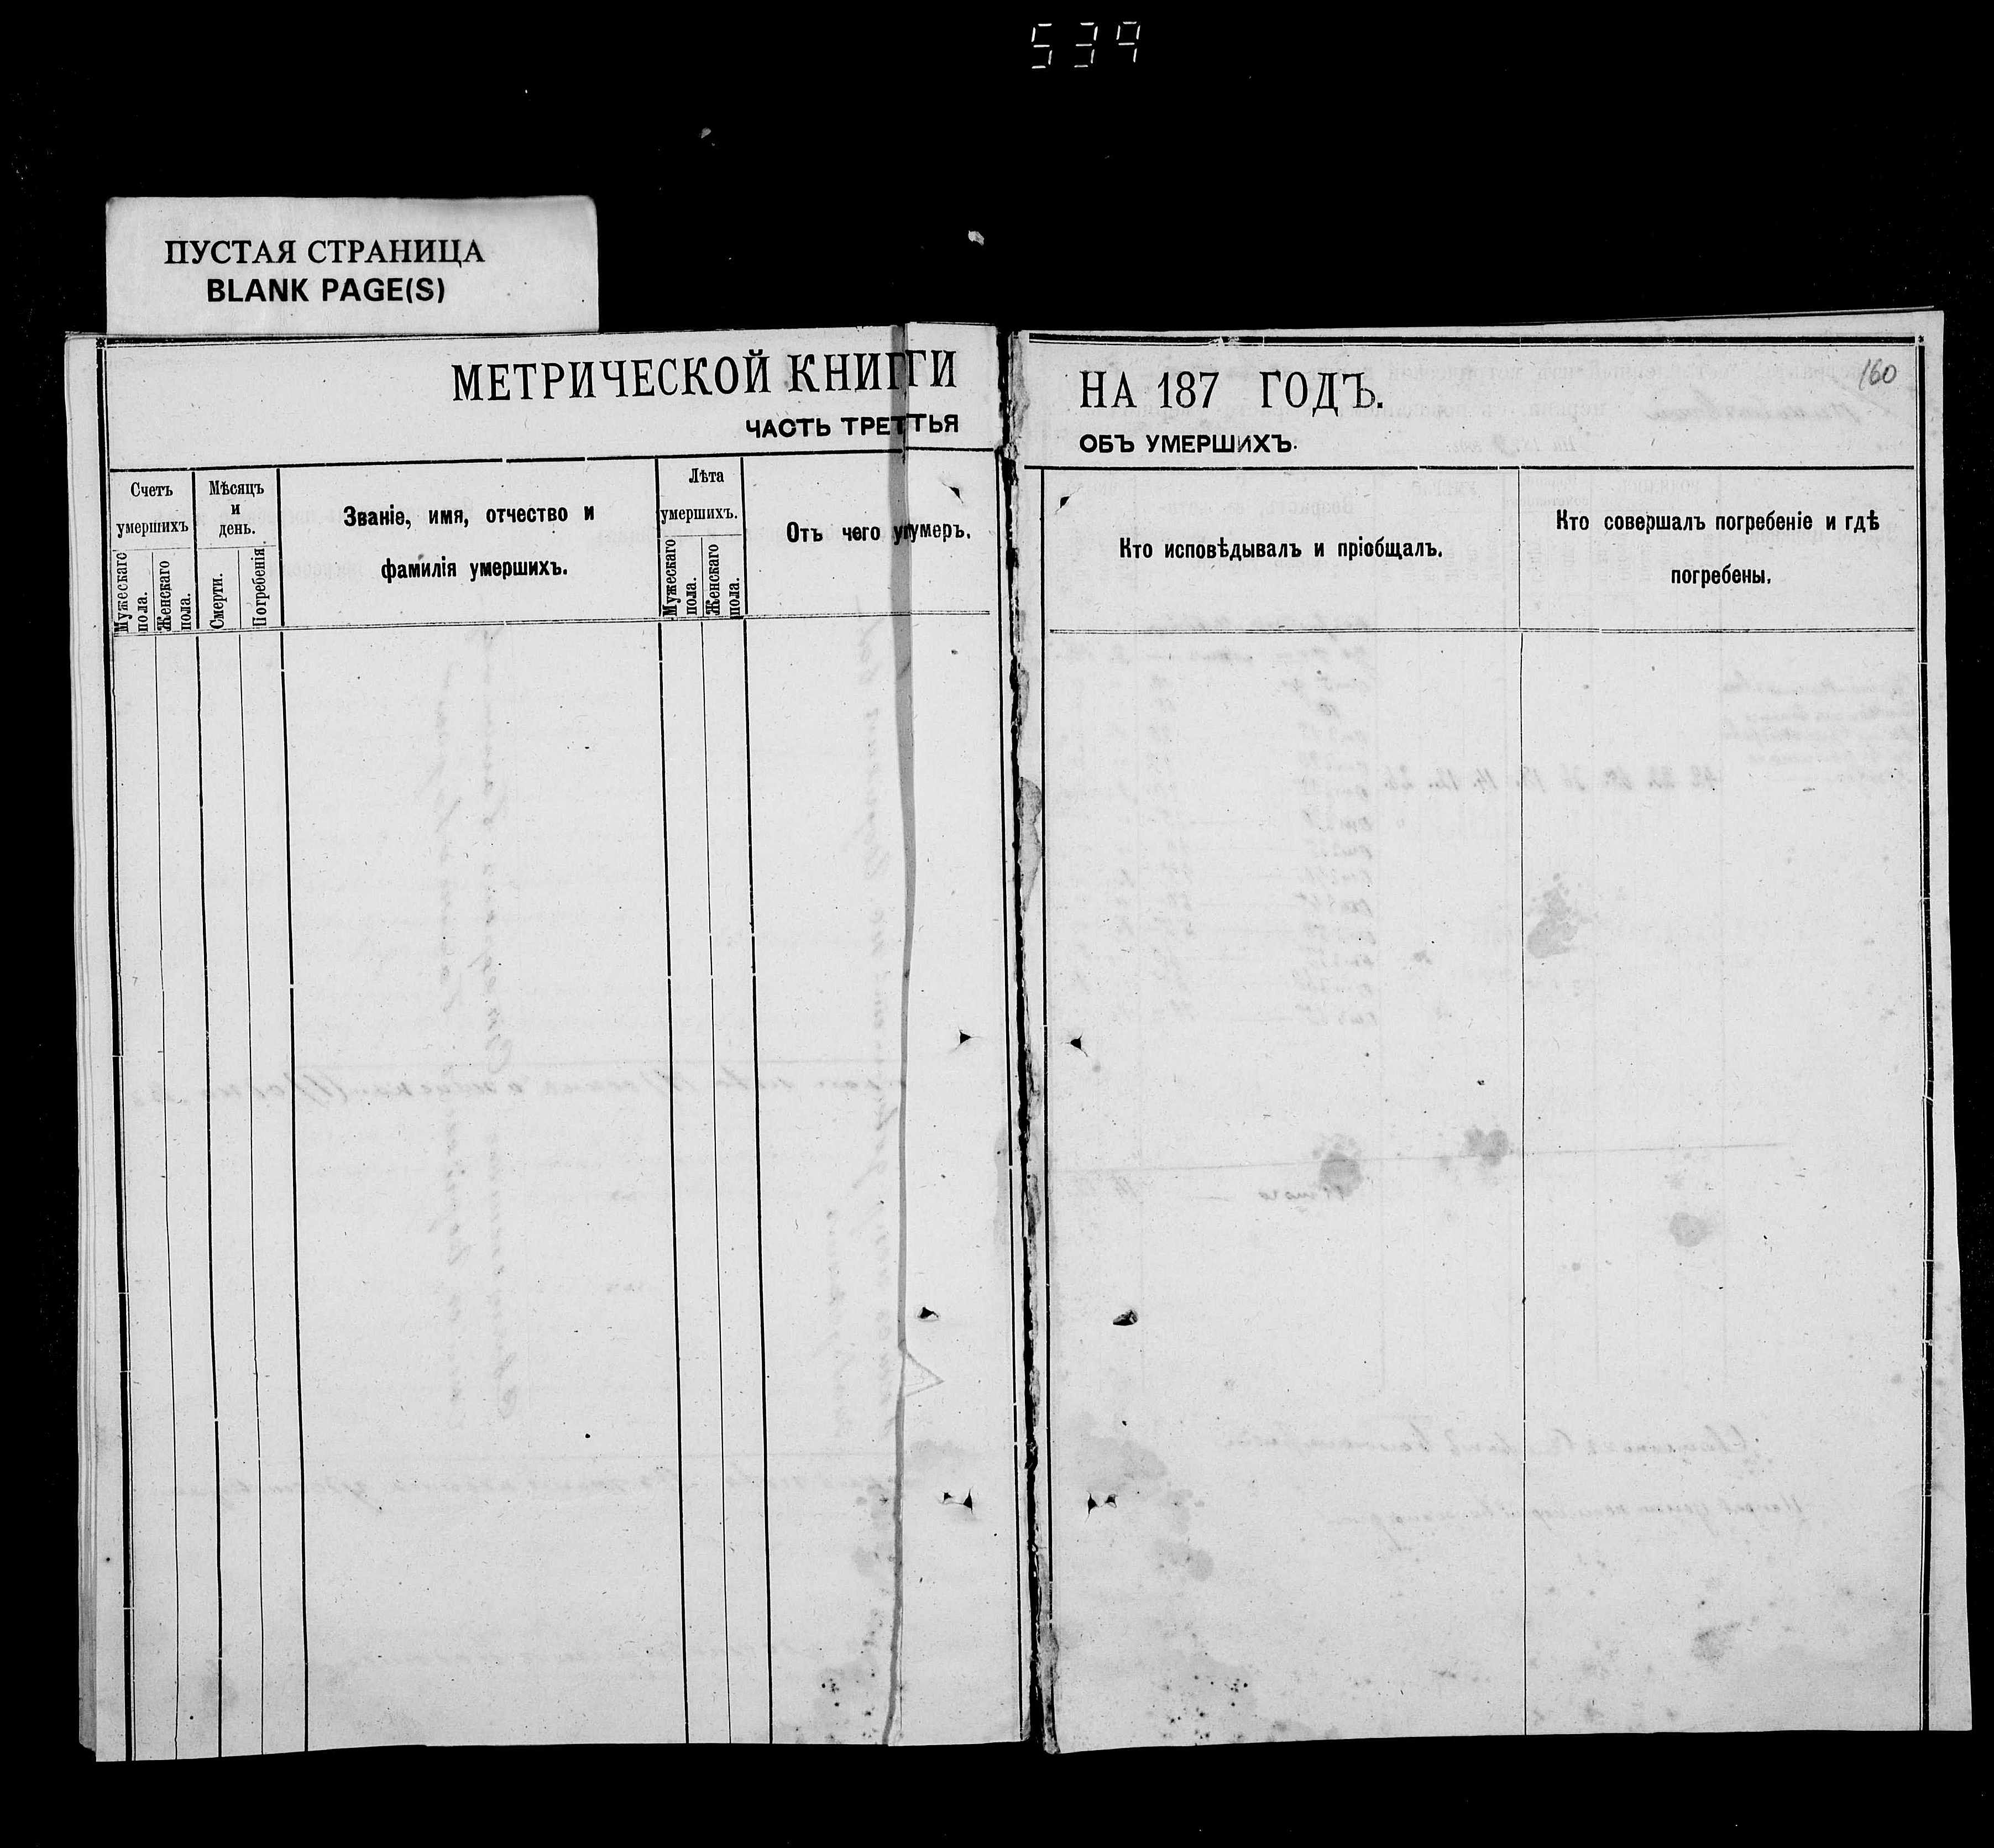 539
ПУСТАЯ СТРАНИЦА
BLANK PAGE(S)
МЕТРИЧЕСКОЙ КНИГИ
ЧАСТЬ ТРЕТЬЯ
НА 187 ГОДЪ.
160
ОБЪ УМЕРШИХЪ.
Счетъ
умершихъ
Мужескаго
пола.
Женскаго
пола.
Мѣсяцъ
и
день.
Смерти.
Погребенія.
Званіе, имя, отчество и
фамилія умершихъ.
Лѣта
умершихъ.
Мужескаго
пола.
Женскаго
пола.
Отъ чего умеръ.
Кто исповѣдывалъ и пріобщалъ.
Кто совершалъ погребеніе и гдѣ
погребены.